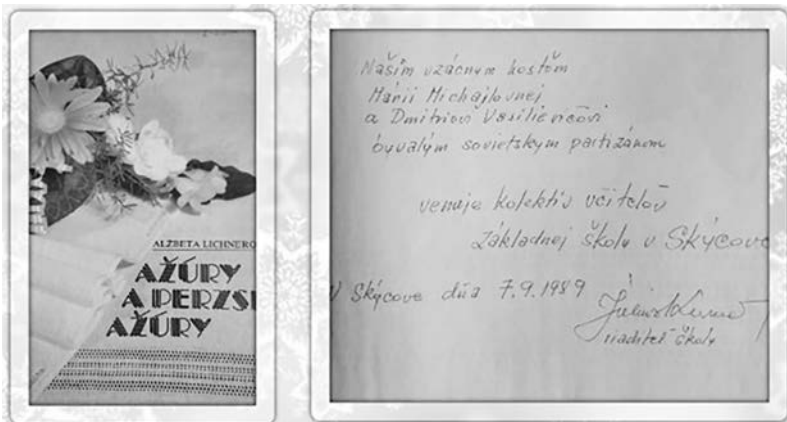 ALŽBETA LICHNERO
AŽÚRY
A PERZS
AŽÚRY
Našim vzácnym hosťom
Márii Michajlovnej
a Dmitriovi Vasilievičovi
bývalým sovietskym partizánom
venuje kolektív učiteľov
základnej školy v Skýcove
V Skýcove dňa 7.9.1989
riaditeľ školy